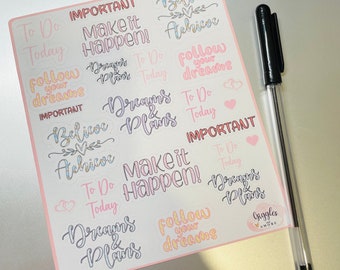 To Do
Today
IMPORTANT
Make it
Happen!
Believe
Achieve
follow
your
dreams
Dreams
& Plans
To Do
Today
follow
your
dreams
IMPORTANT
Dreams
& Plans
To Do
Today
Believe
&
Achieve
IMPORTANT
To Do
Today
Make it
Happen!
To Do
Today
Dreams
& Plans
Dreams
& Plans
follow
your
dreams
Giggles